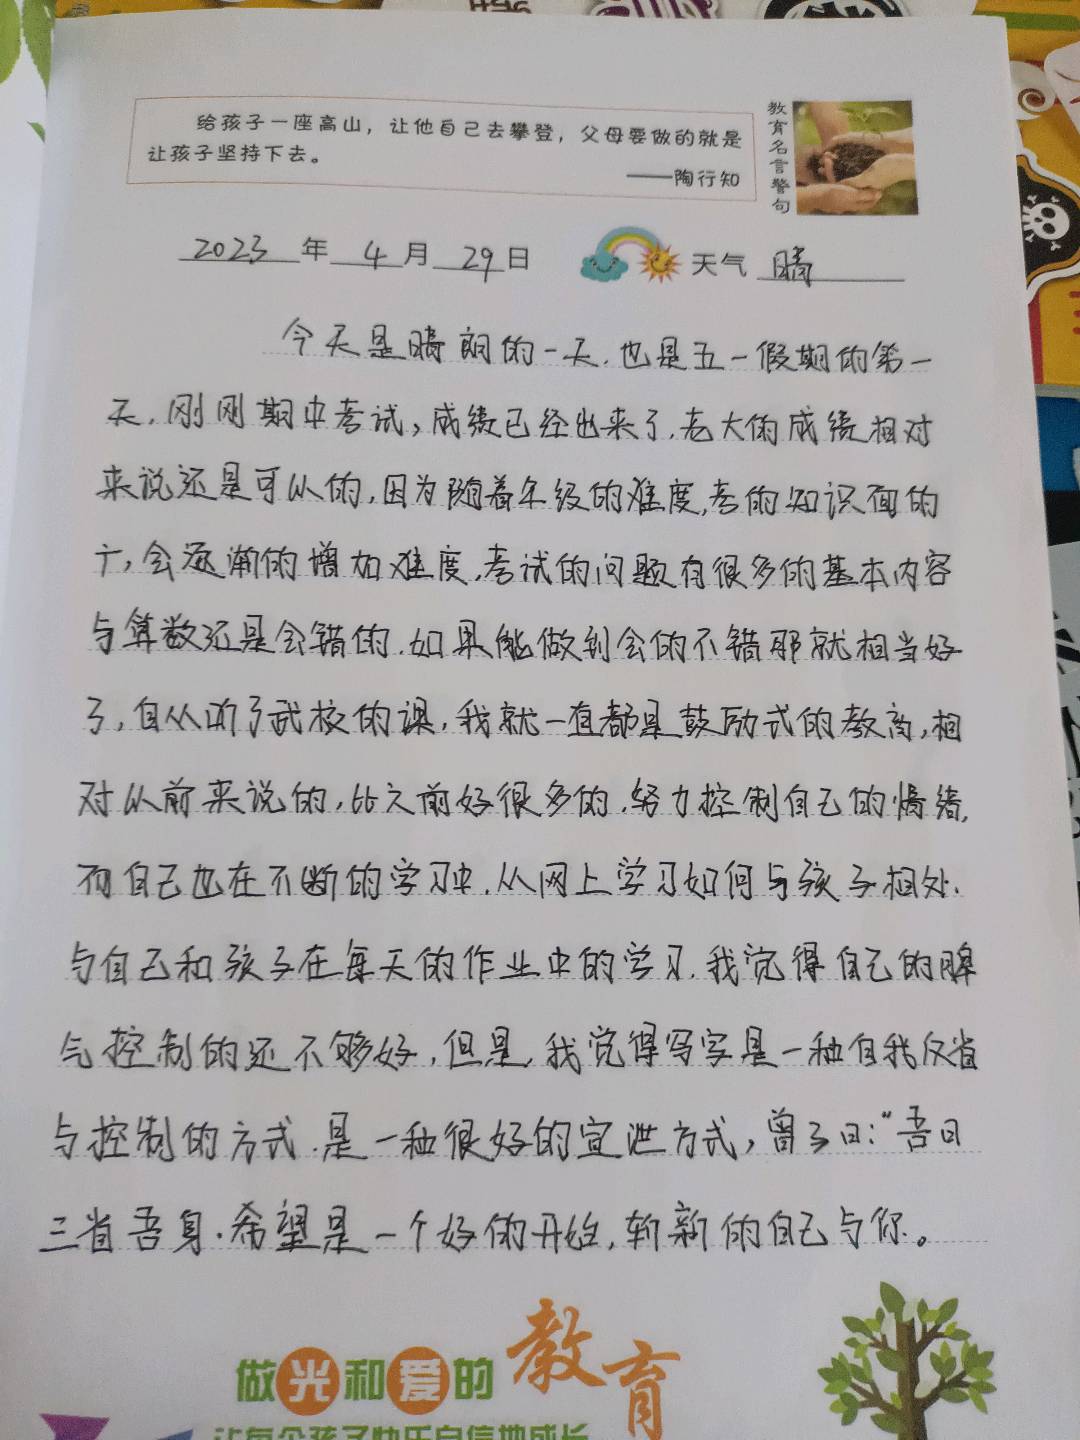 给孩子一座高山，让他自己去攀登，父母要做的就是
让孩子坚持下去。
——陶行知
教育名言警句
2023年4月29日 天气 晴
今天是晴朗的一天.也是五一假期的第一
天.刚刚期中考试,成绩已经出来了.老大的成绩相对
来说还是可以的,因为随着年级的难度,考的知识面的
广,会逐渐的增加难度.考试的问题有很多的基本内容
与算数还是会错的.如果能做到会的不错那就相当好
了,自从听了武校的课,我就一直都是鼓励式的教育,相
对从前来说的,比之前好很多的.努力控制自己的情绪,
而自己也在不断的学习中.从网上学习如何与孩子相处.
与自己和孩子在每天的作业中的学习.我觉得自己的脾
气控制的还不够好,但是,我觉得写字是一种自我反省
与控制的方式.是一种很好的宣泄方式,曾子曰:“吾日
三省吾身.希望是一个好的开始,崭新的自己与你。
做光和爱的教育
让每个孩子快乐自信地成长